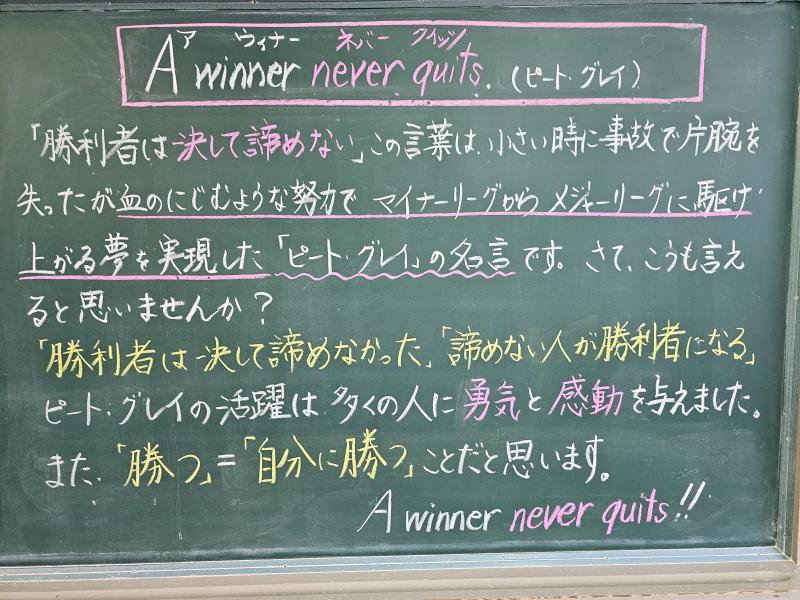 ア ウィナー ネバー クイッツ
A winner never quits. (ピート・グレイ)
「勝利者は決して諦めない」この言葉は、小さい時に事故で片腕を
失ったが血のにじむような努力で マイナーリーグから メジャーリーグに駆け
上がる夢を実現した「ピート・グレイ」の名言です。さて、こうも言え
ると思いませんか？
「勝利者は決して諦めなかった」「諦めない人が勝利者になる」
ピート・グレイの活躍は 多くの人に勇気と感動を与えました。
また、「勝つ」=「自分に勝つ」ことだと思います。
A winner never quits!!